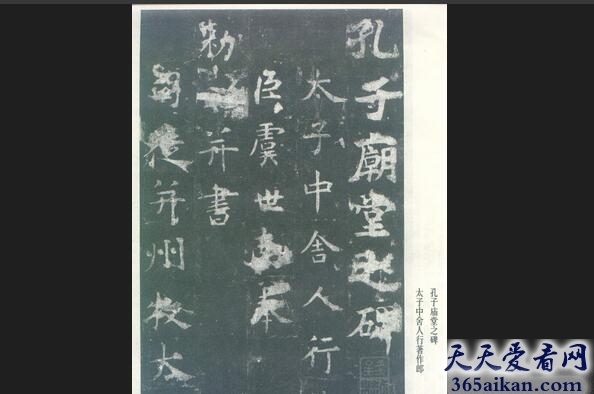 孔子廟堂之碑
太子中舍人行
臣虞世南奉
勅并書
司徒并州牧太
孔子庙堂之碑
太子中舍人行著作郎
天天爱看网
365aikan.com